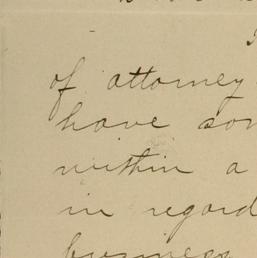 of attorney
have som
within a
in regard
business